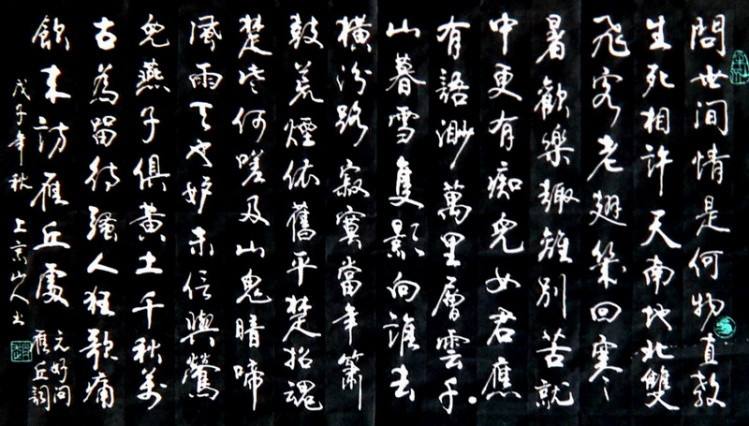 問世间情是何物直教
生死相許天南地北雙
飛客老翅幾回寒
暑歡樂趣離別苦就
中更有痴兒女君應
有語渺萬里層雲千
山暮雪隻影向誰去
橫汾路寂寞當年簫
鼓荒煙依舊平楚招魂
楚些何嗟及山鬼暗啼
風雨天也妒未信與鶯
兒燕子俱黃土千秋萬
古為留待騷人狂歌痛
飲來訪雁丘處
元好问
雁丘詞
戊子年秋上京山人书